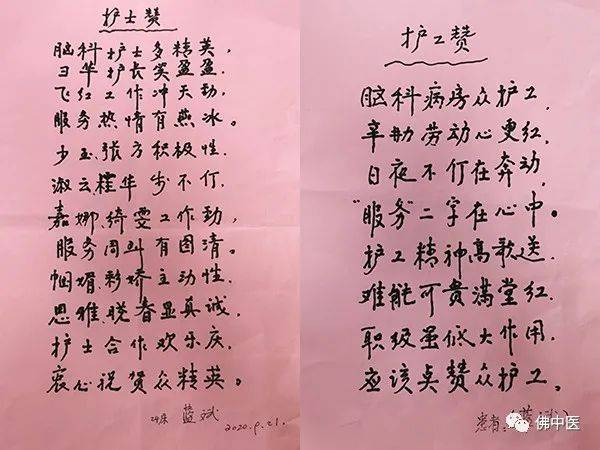 护士赞
脑科护士多精英,
日华护长笑盈盈.
飞红工作冲天劲,
服务热情有燕冰。
少玉、张方积极性.
淑云、桂华步不停,
嘉娜、绮雯工作勤,
服务周到有国清。
帼媚、彩娇主动性.
思雅、晓春显真诚,
护士合作欢乐庆,
衷心祝贺众精英。
24床 蓝斌
2020.9.21.
护工赞
脑科病房众护工,
辛勤劳动心更红,
日夜不停在奔动,
"服务"二字在心中。
护工精神高歌送,
难能可贵满堂红,
职级虽低大作用,
应该点赞众护工。
患者:(蓝斌)
佛中医